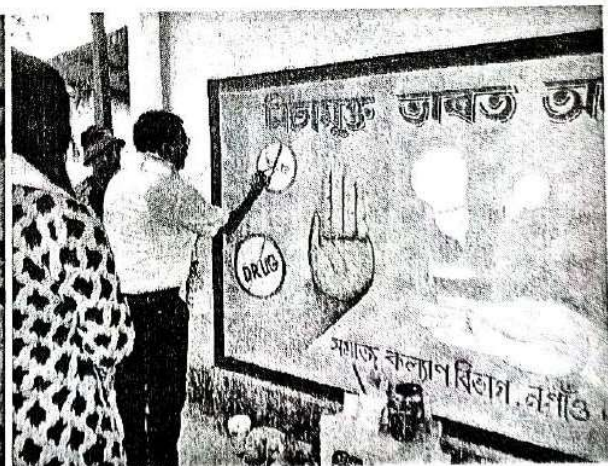 নিচাযুক্ত ভাৰত অ
DRUG
সমাজ কল্যাণ বিভাগ, নগাঁও